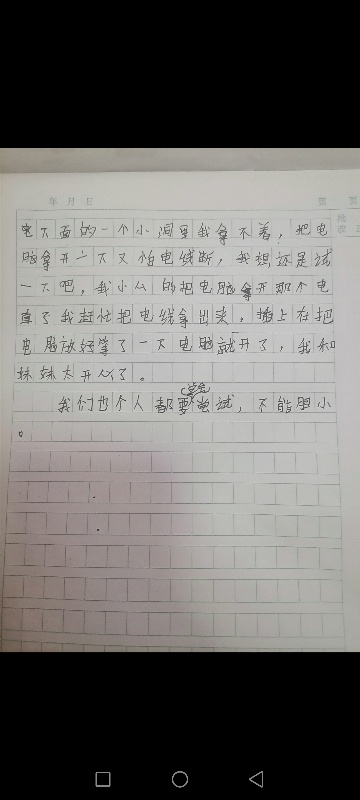 年 月 日 第 页
批
改
电下面的一个小洞里我拿不着，把电
脑拿开一下又怕电线断，我想还是试
一下吧，我小心的把电脑拿开那个电
掉了我赶忙把电线拿出来，插上在把
电脑放好掌了一下电脑就开了，我和
妹妹太开心了。
我们每个人都要尝尝试，不能胆小
。